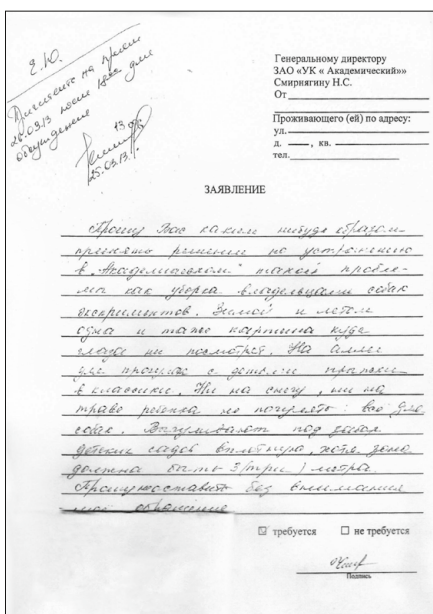 Е.Ю.
Пригласите на прием
26.03.13 после 18ч для
обсуждения
25.03.13г.
Генеральному директору
ЗАО «УК « Академический»»
Смирнягину Н.С.
От
Проживающего (ей) по адресу:
ул.
д. , кв.
тел.
ЗАЯВЛЕНИЕ
Прошу Вас каким нибудь образом
принять решение по устранению
в "Академическом" такой пробле-
мы как уборка владельцами собак
экскриментов. Зимой и летом
одна и таже картина куда
глаза ни посмотрят. На аллее
для прогулки с детьми прыжки
в классики. Ни на снегу, ни на
траве ребенка не погулять: все для
собак. Выгуливают под
детских садов вплотную, хотя зона
должна быть 3/три/метра.
Прошу оставить без внимания
мое обращение
требуется не требуется
Подпись